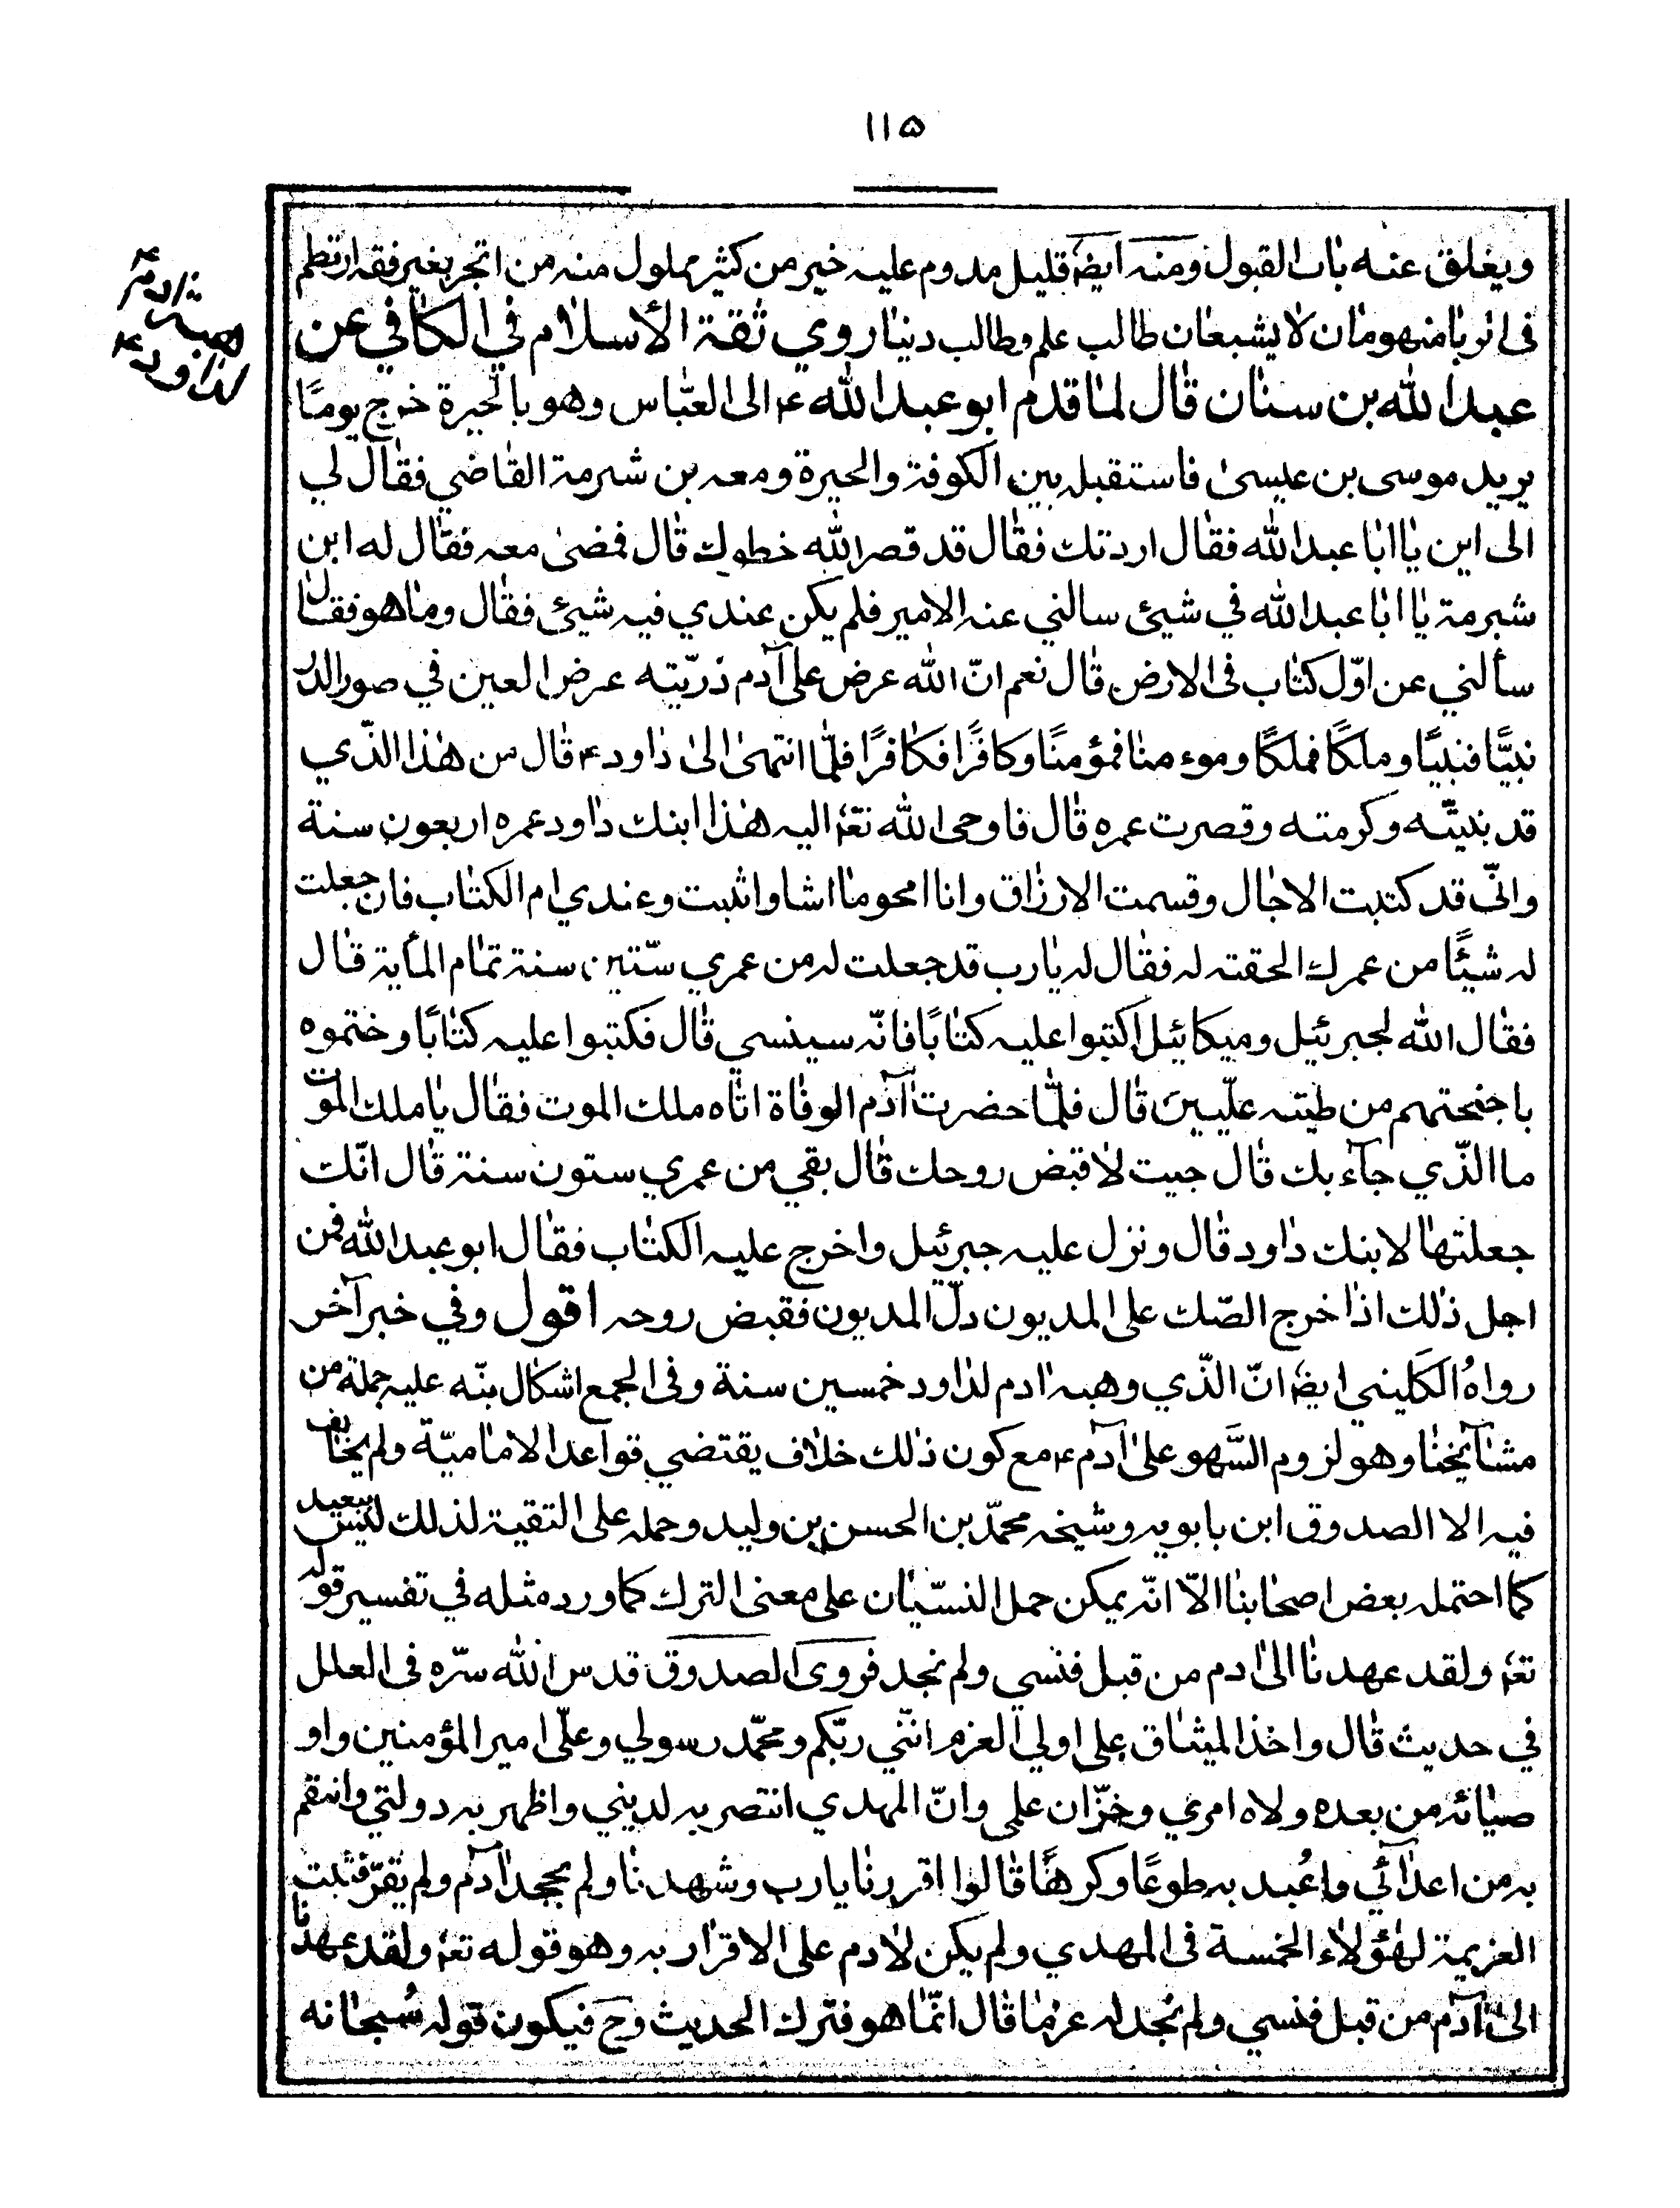 ١١۵
هبة ادم ع
لداود ع
ويغلق عنه باب القبول ومنه ايضً قليل مدوم عليه خير من كثير مملول منه من اتجر بغير فقه ارتطم
فى الربا منهومان لا يشبعان طالب علم وطالب دنيا روي ثقة الأسلام في الكافي عن
عبد الله بن سنان قال لما قدم ابو عبد الله ع الى العبّاس وهو بالحيرة خرج يومًا
يريد موسى بن عيسى فاستقبله بين الكوفة والحيرة ومعه بن شبرمة القاضي فقال لي
الى اين يا ابا عبد الله فقال اردتك فقال قد قصر الله خطوك قال فمضى معه فقال له ابن
شبرمة يا ابا عبد الله في شيئ سالني عنه الامير فلم يكن عندي فيه شيئ فقال وما هو فقال
سألني عن اوّل كتاب فى الارض قال نعم انّ الله عرض على آدم ذرّيّته عرض العين في صور الذر
نبيًّا فنبيًا وملكًا فملكًا وموء منا فمؤمنًا وكافرًا فكافرًا فلمّا انتهى الى داود ع قال من هذا الذّي
قد بنيتّه وكرمته وقصرت عمره قال فاوحى الله تعٰ اليه هذا ابنك داود عمره اربعون سنة
وانّى قد كتبت الاجال وقسمت الارزاق وانا امحو ما اشا واثبت وعندي ام الكتاب فان جعلت
له شيئًا من عمرك الحقته له فقال له يا رب قد جعلت له من عمري ستّين سنة تمام المأية قال
فقال الله لجبرئيل وميكائيل اكتبوا عليه كتابًا فانّه سينسي قال فكتبوا عليه كتابًا وختموه
باجنحتهم من طيته علّيين قال فلمّا حضرت آدم الوفاة اتاه ملك الموت فقال يا ملك الموت
ما الذّي جآء بك قال جيت لاقبض روحك قال بقي من عمري ستون سنة قال انّك
جعلتها لابنك داود قال ونزل عليه جبرئيل واخرج عليه الكتاب فقال ابو عبد الله فمن
اجل ذلك اذا خرج الصّك على المديون دلّ المديون فقبض روحه اقول وفي خبر آخر
رواهُ الكَليني ايضً انّ الذّي وهبه ادم لداود خمسين سنة وفى الجمع اشكال بنّه عليه جملة من
مشآيخنا وهو لزوم السَّهو على آدم ع مع كون ذلك خلاف يقتضي قواعد الامامّية ولم يخالف
فيه الا الصدوق ابن بابويه وشيخه محمّد بن الحسن بن وليد وحمله على التقية لذلك ليس ببعيد
كما احتمله بعض اصحابنا الاّ انّه يمكن حمل النسّيان على معنى الترك كما ورد مثله في تفسير قوله
تعٰ ولقد عهدنا الى ادم من قبل فنسي ولم نجد فروى الصدوق قدس الله سرّه فى العلل
في حديث قال واخذ الميثاق على اولي العزم انّني ربّكم ومحمّد رسولي وعليّ امير المؤمنين واو
صيائه من بعده ولاه امري وخزّان علمى وانّ المهدي انتصر به لديني واظهر به دولتي وانتقم
به من اعدآئي واعُبد به طوعًا وكرهًا قالوا اقررنا يا رب وشهدنا ولم يجحد آدم ولم يقرّ فثبت
العزيمة لهؤلاء الخمسة فى المهدي ولم يكن لادم على الاقرار به وهو قوله تعٰ ولقد عهدنا
الى آدم من قبل فنسي ولم نجد له عزما قال انّما هو فترك الحديث وحَ فيكون قوله سُبحانه